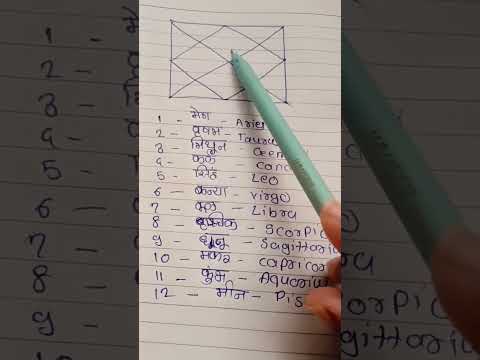 1 - मेष - Aries
2 - वृषभ - Tauru
3 - मिथुन Gem
4 - कर्क canc
5 - सिंह - Leo
6 - कन्या - virgo
7 - तुला - Libra
8 - वृश्चिक - Scorpio
9 - धनु - Sagittariu
10 - मकर - capricor
11 - कुंभ - Aquariu
12 - मीन - Pis